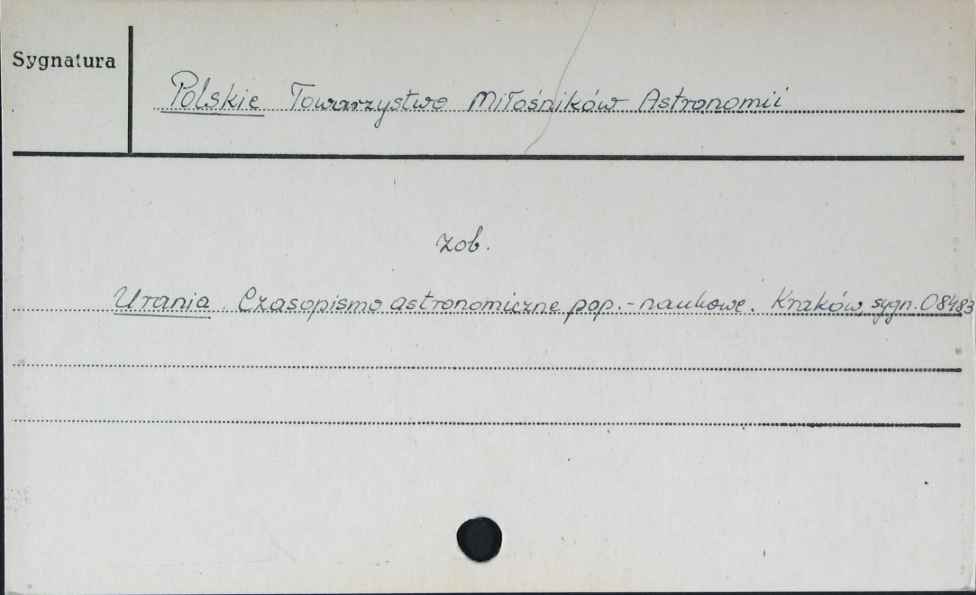 Sygnatura
Polskie Towarzystwo Miłośników Astronomii
zob.
Urania. Czasopismo astronomiczne pop.-naukowe. Kraków, sygn. 08483